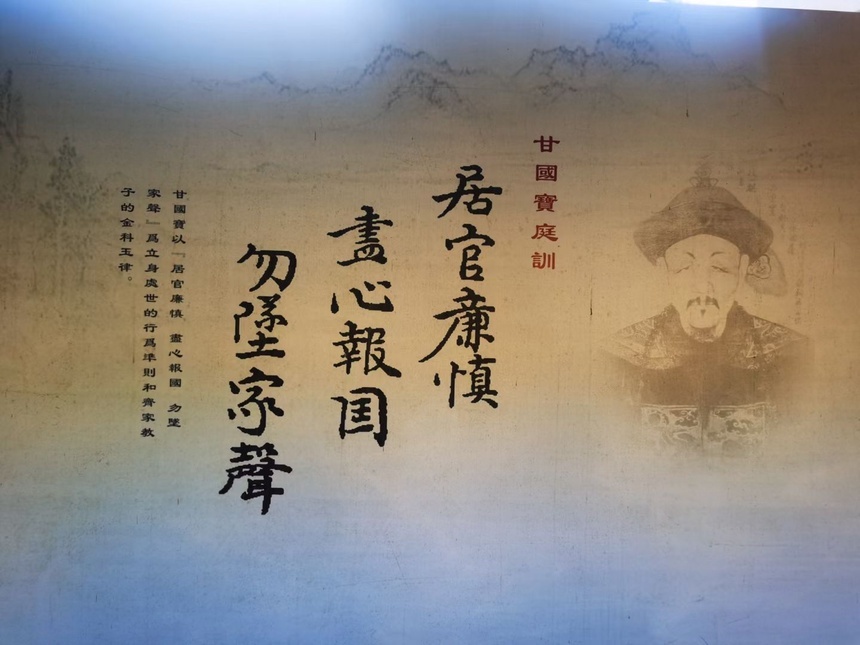 甘國寶庭訓
居官廉慎
盡心報国
勿墜家聲
甘國寶以『居官廉慎 盡心報國 勿墜
家聲』爲立身處世的行爲準則和齊家教
子的金科玉律。